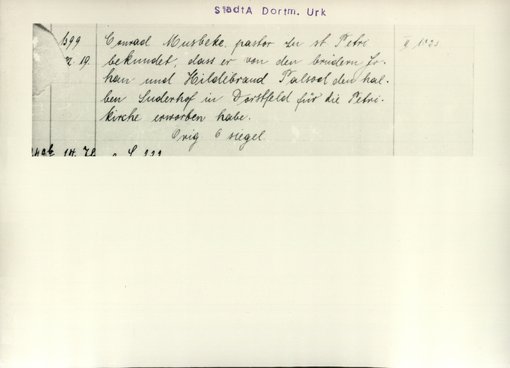 StadtA Dortm. Urk
1399 Conrad Musbeke, pastor zu st. Petri
19. bekundet, dass er von den brüdern Jo-
han und Hildebrand Palsod den hal-
ben Suderhof in Dorstfeld für die Petri-
kirche erworben habe.
Orig 6 siegel